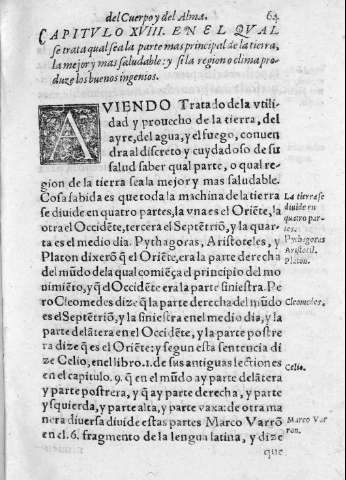 del Cuerpo y del Alma. 64
CAPITVLO XVIII. EN EL QVAL
se trata qual sea la parte mas principal de la tierra,
la mejor y mas saludable: y si la region o clima pro-
duze los buenos ingenios.
AVIENDO Tratado de la vtili-
dad y prouecho de la tierra, del
ayre, del agua, y el fuego, conuen
dra al discreto y cuydadoso de su
salud saber qual parte, o qual re-
gion de la tierra sea la mejor y mas saludable.
Cosa sabida es que toda la machina de la tierra
se diuide en quatro partes, la vna es el Oriẽte, la
otra el Occidẽte, tercera el Septẽtriõ, y la quar-
ta es el medio dia. Pythagoras, Aristoteles, y
Platon dixerõ q̃ el Oriẽte, era la parte derecha
del mũdo de la qual comiẽça el principio del mo
uimiẽto, y q̃ el Occidẽte era la parte siniestra. Pe
ro Cleomedes dize q̃ la parte derecha del mũdo
es el Septẽtriõ, y la siniestra en el medio dia, y la
parte delãtera en el Occidẽte, y la parte postre
ra dize q̃ es el Oriẽte: y segun esta sentencia di
ze Celio, en el libro. 1. de sus antiguas lectiones
en el capitulo. 9. q̃ en el mũdo ay parte delãtera
y parte postrera, y q̃ ay parte derecha, y parte
ysquierda, y parte alta, y parte vaxa: de otra ma
nera diuersa diuide estas partes Marco Varrõ
en el. 6. fragmento de la lengua latina, y dize
que
La tierra se
diuide en
quatro par-
tes.
Pythagoras
Aristotil.
Platon.
Cleomedes.
Celio.
Marco Var
ron.